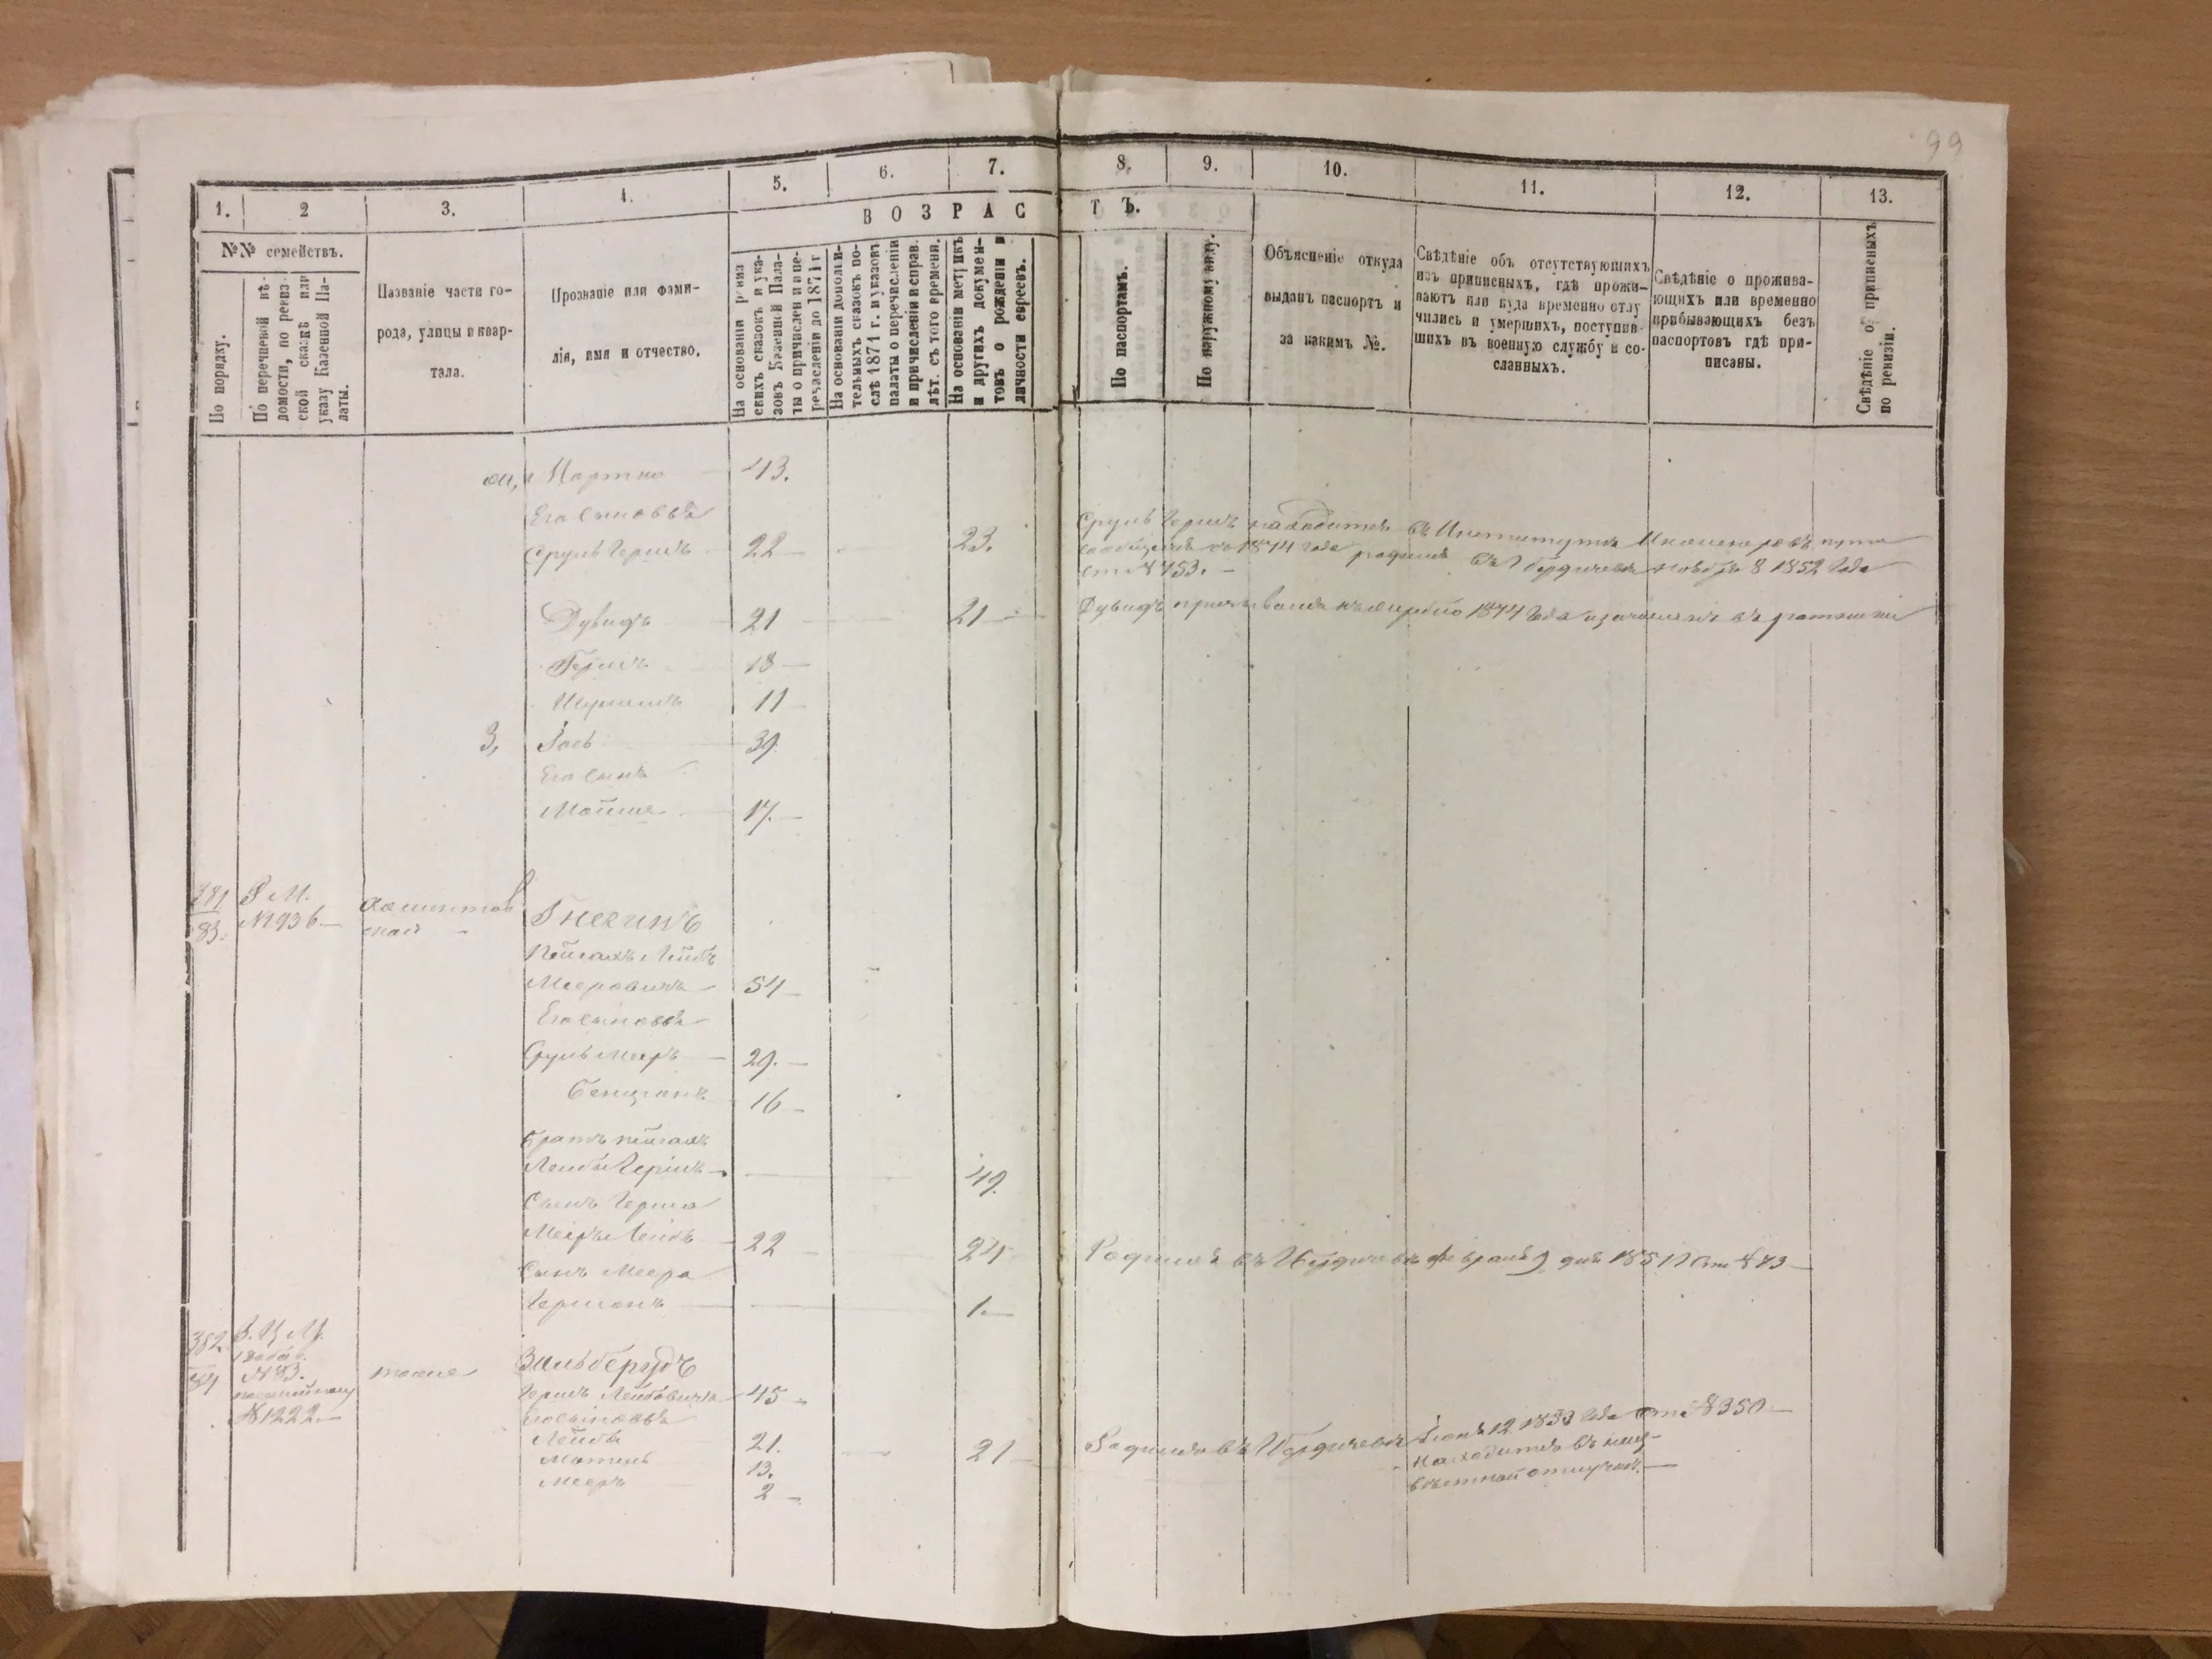 99
1.
2
3.
4.
5.
6.
7.
8.
9.
10.
11.
12.
13.
ВОЗРАС
ТЪ.
№№ семействъ.
По порядку.
По перечневой вѣ-
домости, по ревиз-
ской сказкѣ или
указу Казенной Па-
латы.
Названіе части го-
рода, улицы и квар-
тала.
Прозваніе или фами-
лія, имя и отчество.
На основаніи ревиз
скихъ сказокъ и ука-
зовъ Казенной Пала-
ты о причислен и и пе-
речисленіи до 1871 г
На основаніи дополни-
тельныхъ сказокъ по-
слѣ 1871 г. и указовъ
палаты о перечисленіи
и причисленіи и справ.
лѣт. съ того времени.
На основаніи метрикъ
и другихъ докумен-
товъ о рожденіи и
личности евреевъ.
По паспортамъ.
По наружному виду.
Объясненіе откуда
выданъ паспортъ и
за какимъ №.
Свѣдѣніе объ отсутствующихъ
изъ приписныхъ, гдѣ прожи-
ваютъ или куда временно отлу
чились и умершихъ, поступив-
шихъ въ военную службу и со-
сланныхъ.
Свѣдѣніе о прожива-
ющихъ или временно
прибывающихъ безъ
паспортовъ гдѣ при-
писаны.
Свѣдѣніе о приписныхъ
по ревизіи.
Мартко 43.
Его сыновья
Сруль Гершъ 22 23. Сруль Гершъ находится въ Институтѣ Инженеровъ путей
сообщенія до 1874 года родился въ Г Бердичевѣ Ноября 8 1852 года
ст № 753.
Дувидъ 21 21 Дувидъ 1874 года и зачисленъ въ ратники
Гершъ 18
Шулимъ 11
3, Іось 39.
Его сынъ
Мойше 17.
381 Р М.
83. № 936.
Гнесинъ
Пейсахъ Лейбъ
Мееровичъ 54
Его сыновья
Сруль Мееръ 29.
Бенционъ 16
Братъ Пейсахъ
Лейбы Гершъ 49.
Сынъ Герша
Мееръ Лейбъ 22 24 Родился въ Г Бердичевѣ Февраля 9 дня 1851 Г ст № 73
Сынъ Меера
Гершонъ 1.
382
84 № 83.
№ 1222.
тоже
Зильбергудъ
Гершъ Лейбовичъ 45
Его сыновья
Лейбъ 21. 21 Родился въ Г Бердичевѣ Іюня 12 1853 года ст № 350
Мотель 13. находится въ неиз-
Мееръ 2 вѣстной отлучкѣ.